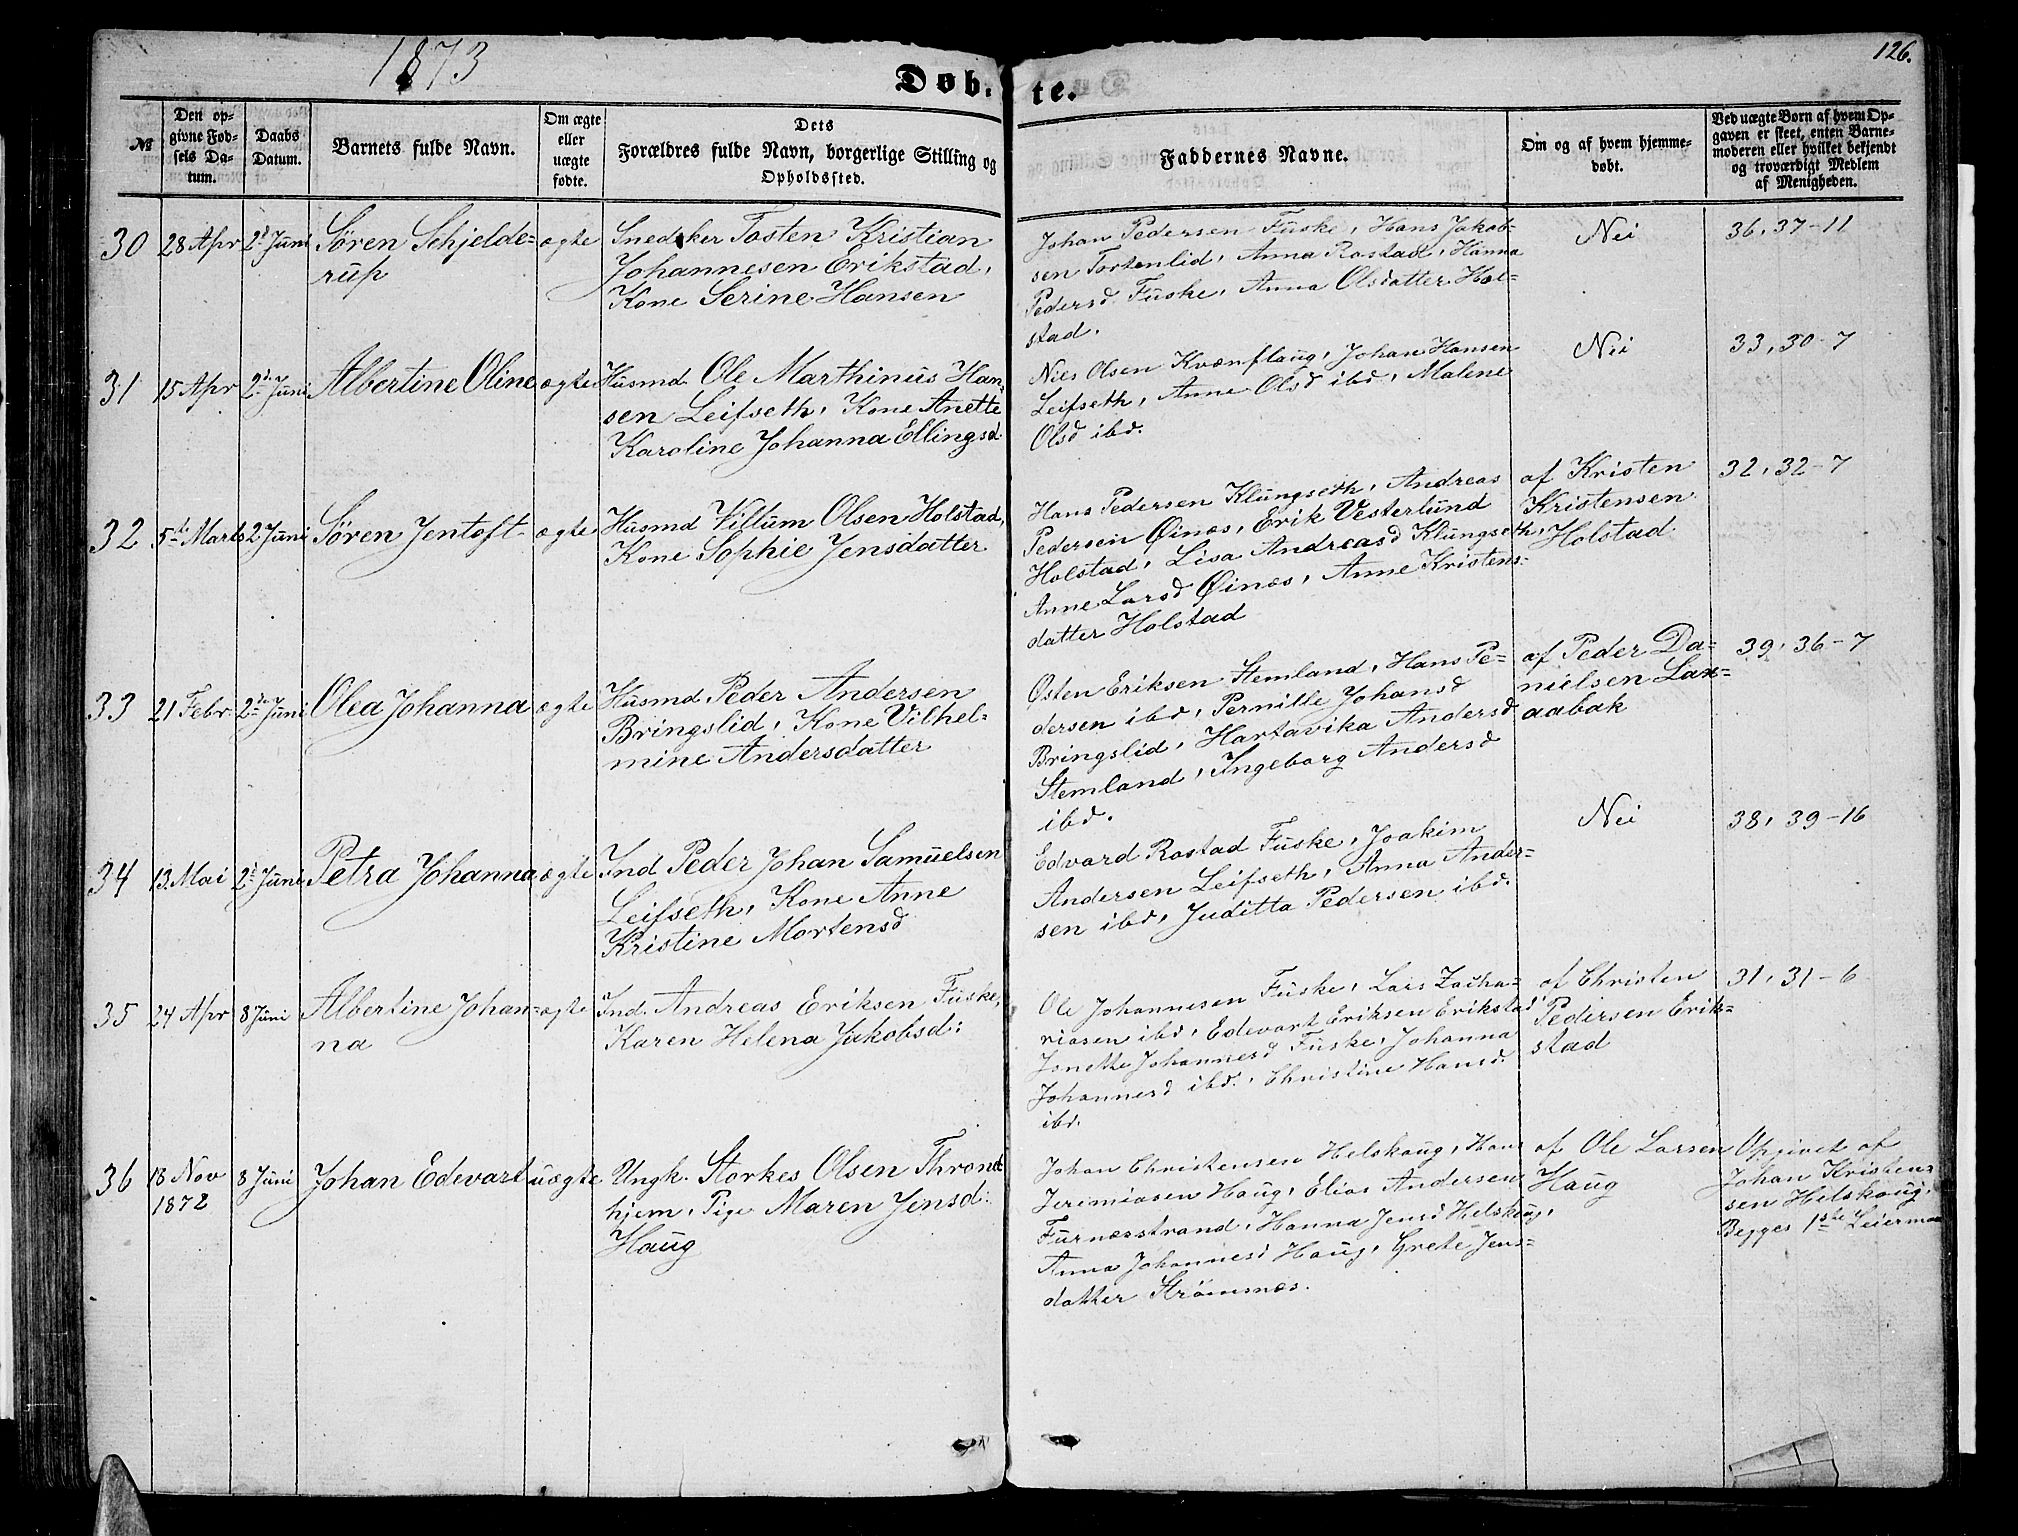 1873
126.
Døb- te.
№
Den op-
givne Fød-
sels Da-
tum.
Daabs
Datum.
Barnets fulde Navn.
Om ægte
eller
uægte
fødte.
Dets
Forældres fulde Navn, borgerlige Stilling og
Opholdssted.
Faddernes Navne.
Om og af hvem hjemme-
døbt.
Ved uægte Børn af hvem Op-
gaven er skeet, enten Barne-
moderen eller hvilket bekjendt
og troværdigt Medlem
af Menigheden.
30
28 Apr
2d Juni
Søren Schjelde=
rup
ægte
Snedker Tosten Kristian
Johannesen Erikstad,
Kone Serine Hansen
Johan Pedersen Fuske, Hans Jakob-
sen Tortenlid, Anna Rostad, Hanna
Pedersd Fuske, Anna Olsdatter Hol-
stad.
Nei
36, 37-11
31
15 Apr
2den Juni
Albertine Oline
ægte
Husmd Ole Marthinus Han-
sen Leifseth, Kone Anette
Karoline Johanna Ellingsd
Niels Olsen Kvænflaug, Johan Hansen
Leifseth, Anne Olsd ibd, Malene
Olsd ibd.
Nei
33, 30-7
32
5te Marts
2 Juni
Søren Jentoft
ægte
Husmd Villum Olsen Holstad,
Kone Sophie Jensdatter
Hans Pedersen Klungseth, Andreas
Pedersen Øinæs, Erik Vesterlund
Holstad, Lisa Andreasd Klungseth,
Anne Larsd Øinæs, Anne Kristens-
datter Holstad
af Kristen
Kristensen
Holstad.
32, 32-7
33
21 Febr
2den Juni
Olea Johanna
ægte
Husmd Peder Andersen
Bringslid, Kone Vilhel-
mine Andersdatter
Østen Eriksen Stemland, Hans Pe-
dersen ibd, Pernille Johansd
Bringslid, Hartavika Andersd
Stemland, Ingeborg Andersd
ibd.
af Peder Da-
nielsen Lax-
aabak
39, 36-7
34
13. Mai
2d Juni
Petra Johanna
ægte
Ind Peder Johan Samuelsen
Leifseth, Kone Anne
Kristine Mortensd
Edvard Rostad Fuske, Joakim
Andersen Leifseth, Anna Ander-
sen ibd, Juditta Pedersen ibd.
Nei
38, 39-16
35
24 Apr
8 Juni
Albertine Johan-
na
ægte
Ind. Andreas Eriksen Fuske,
Karen Helena Jakobsd:
Ole Johannesen Fuske, Lars Zacha-
riasen ibd, Edevart Eriksen Erikstad,
Jonette Johannesd Fuske, Johanna
Johannesd ibd., Christine Hansd.
ibd.
af Christen
Pedersen Erik-
stad
31, 31-6
36
18 Nov
1872
8 Juni
Johan Edevart
uægte
Ungk. Storkes Olsen Thrond
hjem, Pige Maren Jensd:
Haug
Johan Christensen Helskaug, Hans
Jeremiasen Haug, Elias Andersen
Furnæsstrand, Hanna Jensd Helskaug,
Anna Johannesd Haug, Grete Jens-
datter Strømsnæs.
af Ole Larsen
Haug
Opgivet af
Johan Kristen-
sen Helskaug.
Begges 1ste Leiermaal